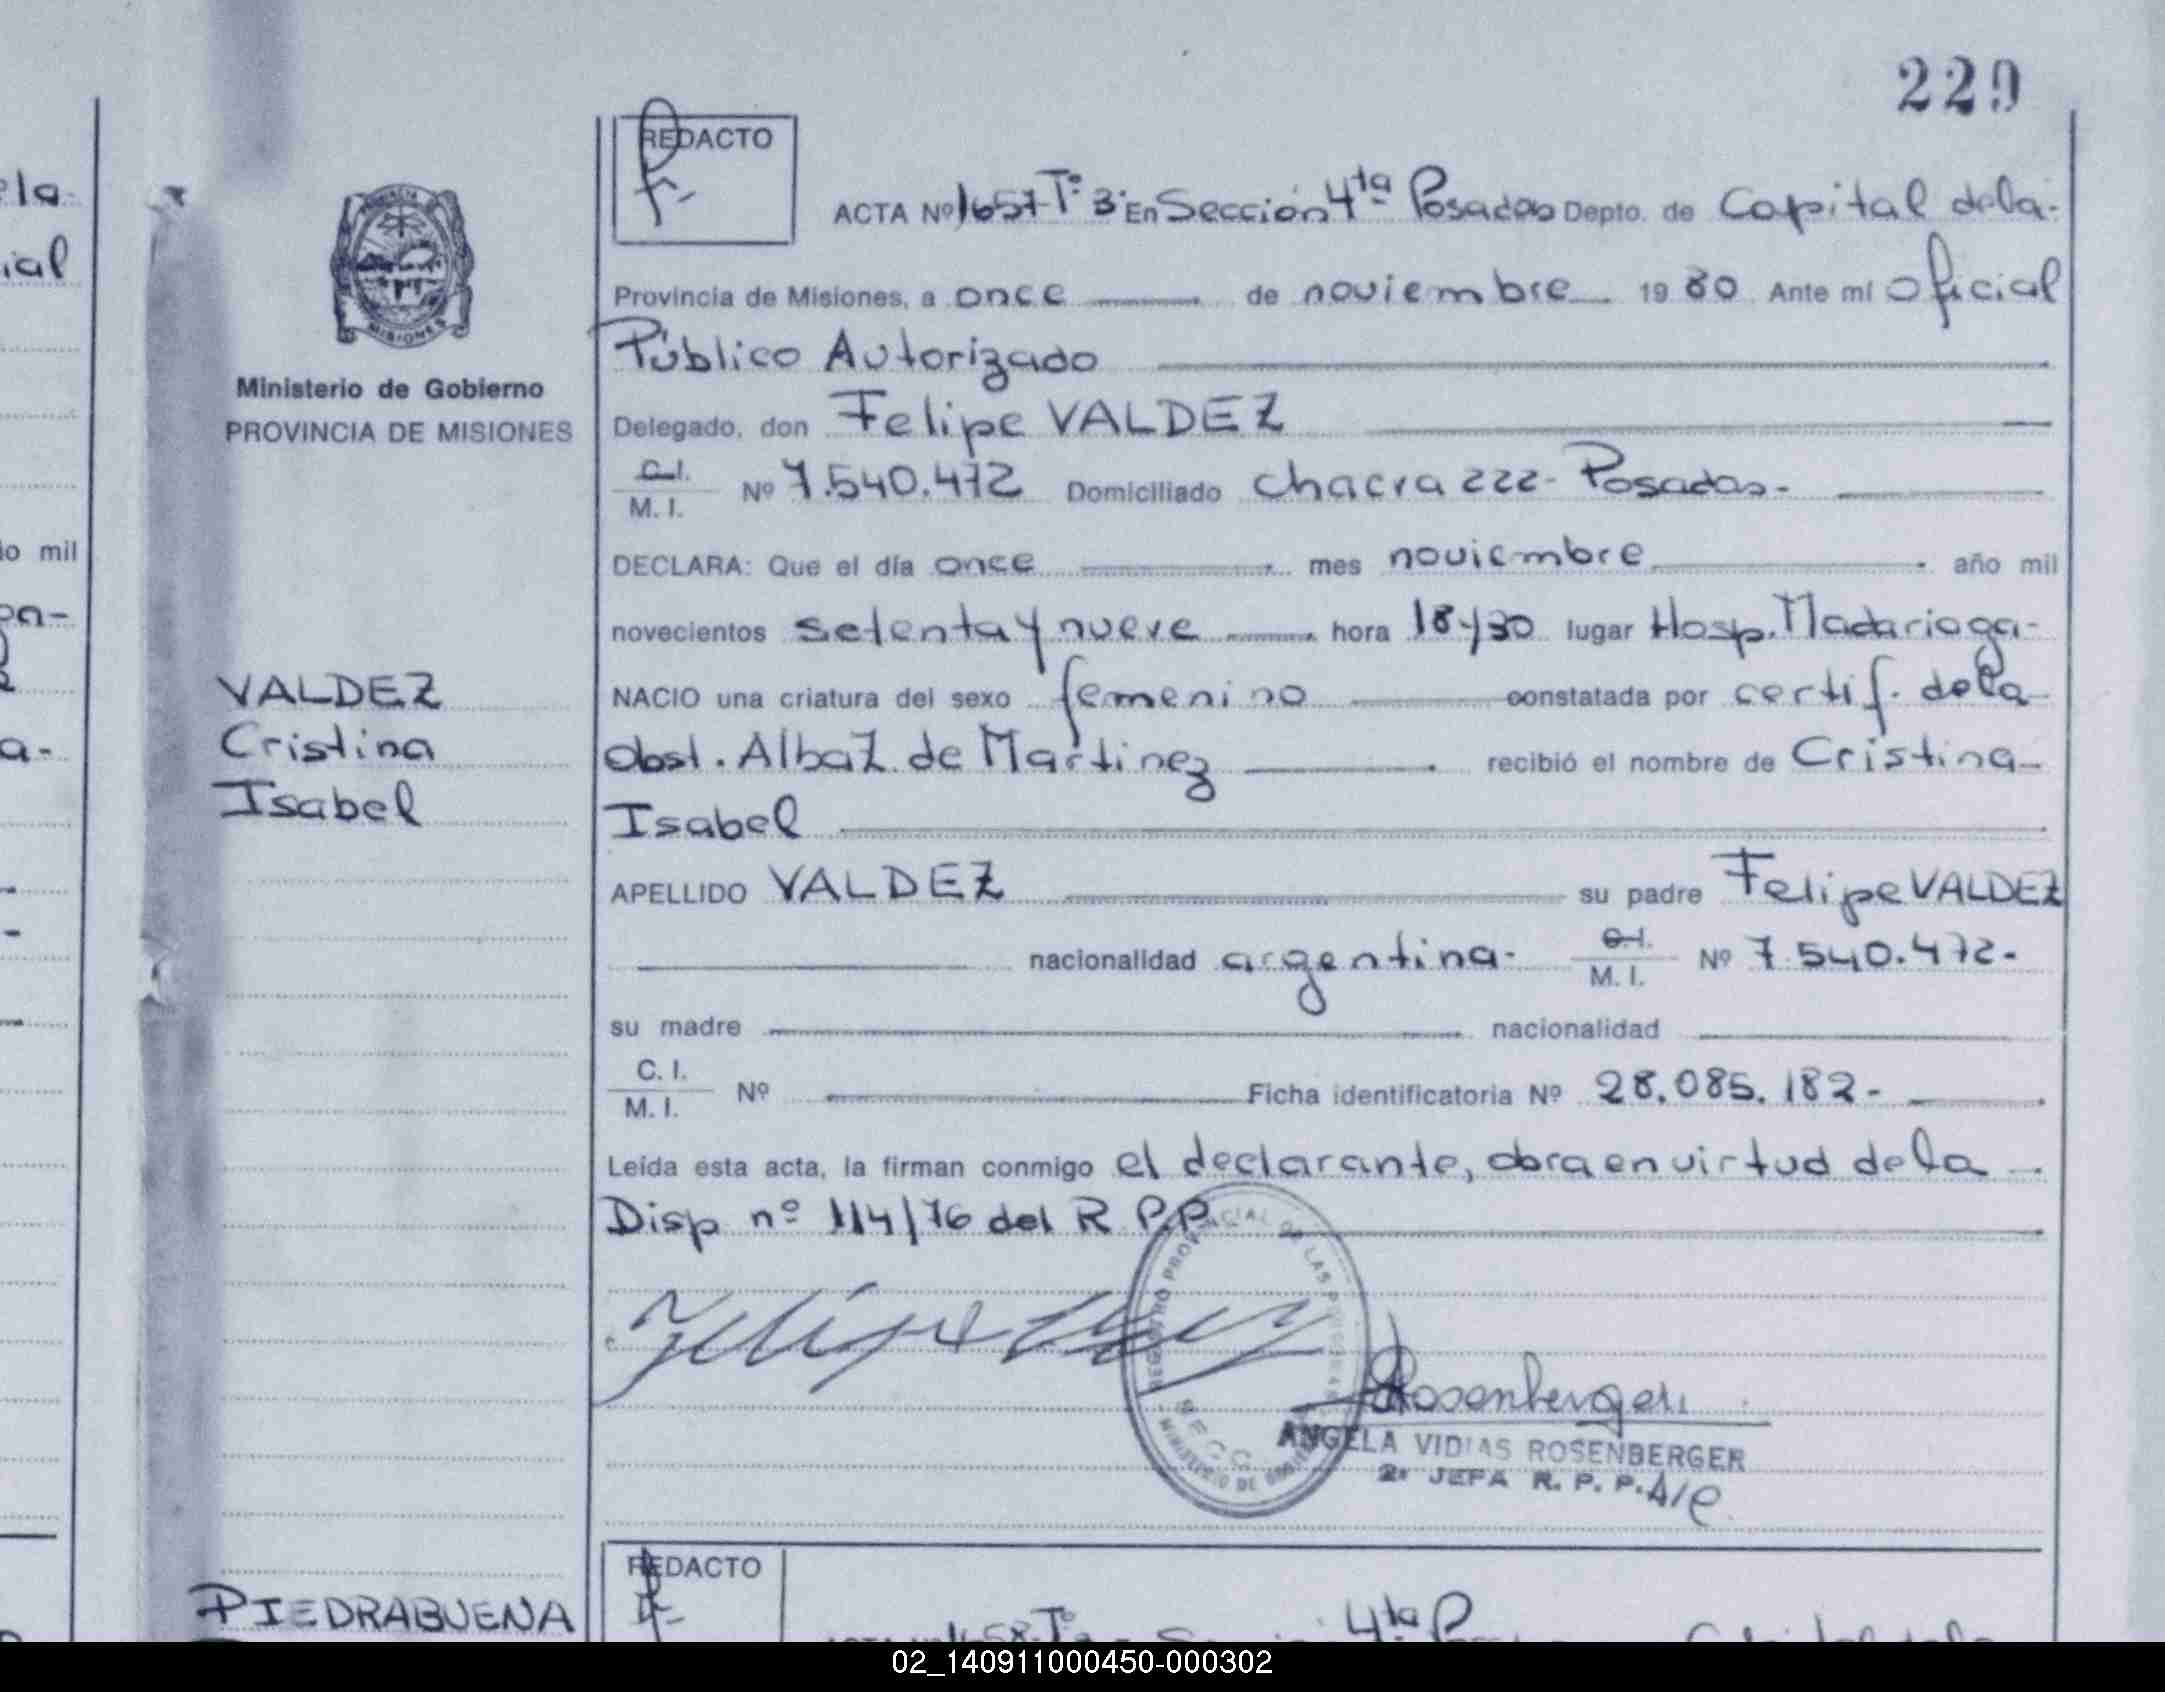 229
REDACTO
ACTA Nº 1657 Tº 3º En Sección 4ta Posadas Depto. de Capital de la-
Provincia de Misiones, a once de noviembre 19 80 Ante mí Oficial
Público Autorizado
Delegado, don Felipe VALDEZ
C.I.
M. I. Nº 7.540.472 Domiciliado chacra 222- Posadas-
DECLARA: Que el día once mes noviembre año mil
novecientos setenta y nueve hora 18y30 lugar Hosp. Madariaga-
NACIO una criatura del sexo femenino constatada por certif. de la
Obst. Alba Z. de Martinez recibió el nombre de Cristina-
Isabel
APELLIDO VALDEZ su padre Felipe VALDEZ
nacionalidad argentina- C.I.
M. I. Nº 7.540.472-
su madre nacionalidad
C. I.
M. I. Nº Ficha identificatoria Nº 28.085.182-
Leída esta acta, la firman conmigo el declarante, obra en virtud de la
Disp nº 114/76 del R P.P.
REGISTRO PROVINCIAL DE LAS PERSONAS
MINISTERIO DE GOBIERNO
Rosenberger
ANGELA VIDIAS ROSENBERGER
2ª JEFA R. P. P. A/C
PROVINCIA
MISIONES
Ministerio de Gobierno
PROVINCIA DE MISIONES
VALDEZ
Cristina
Isabel
PIEDRABUENA
REDACTO
1658 Tº 4ta
la
ial
lo mil
02_140911000450-000302